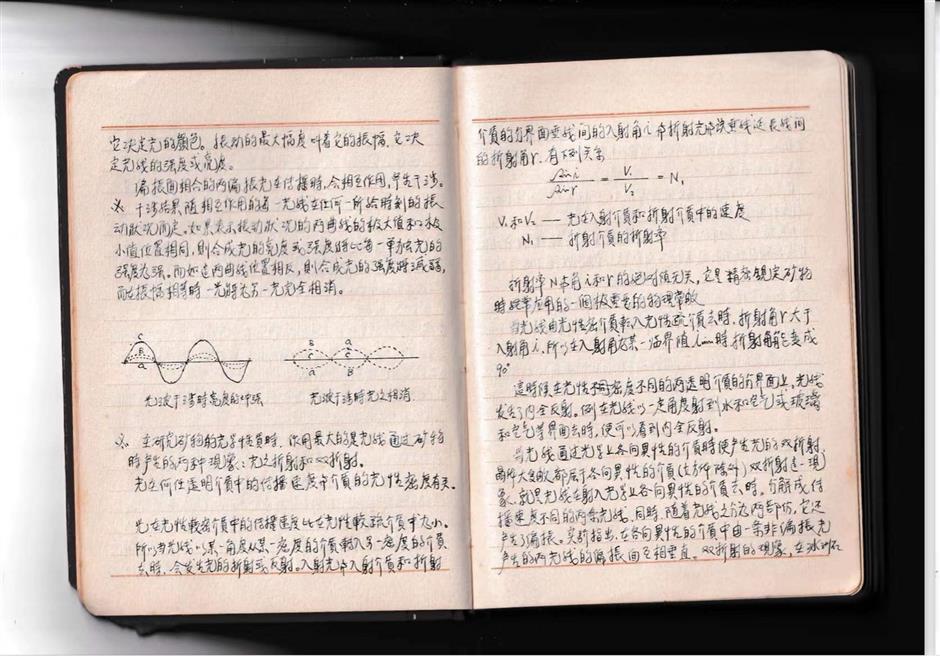 它决定光的颜色。振动的最大幅度叫着它的振幅,它决
定光线的强度或亮度。
偏振面相合的两偏振光在传播時,会相互作用,
※ 干涉结果随相互作用的着一光线在任何一所给時刻的振
动狀况而定。如果表示振动狀况的两曲线的极大值和极
小值位置相同,則合成光的亮度或强度將比每一單独光的
强度为强。而如这两曲线位置相反,則合成光的强度將减弱,
而在振幅相等時一光將与另一光完全相消。
C
B
a
a
C
B
光波干涉時亮度的加强
光波干涉時光之相消
※ 在研究矿物的光学性質時,作用最大的是光线通过矿物
時产生的两种現象:光之折射和双折射。
光之在任透明介質中的传播速度与介質的光性密度有关。
光在光性較密介質中的传播速度比在光性較疏介質中为小。
所以当光线以某一角度从某一密度的介質轉入另一密度的介質
去時,会发生光的折射或反射。入射光与入射介質和折射
介質的分界面垂线间的入射角i与折射光与該垂线延長线间
的折射角r,有下列关系
sin i / sin r = V₁ / V₂ = N₁
V₁和V₂ — 光在入射介質和折射介質中的速度
N₁ — 折射介質的折射率
折射率N与角i和r的絕对值无关,它是精密鏡定矿物
時經常应用的一個极重要的物理常数
当光线由光性密介質轉入光性疏介質去時,折射角r大于
入射角i,所以在入射角为某一临界值 i 時折射角能变成
90°
這時候在光性不同密度不同的两透明介質的分界面上,光线
发生了内全反射。例在光线以一定角度射到水和空气或玻璃
和空气等界面去時,便可以看到内全反射。
当光线通过光学上各向異性的介質時便产生光的双折射,
晶体大多数都屬于各向異性的介質(方体除外)双折射这一現
象,就是光线在射入光学上各向異性的介質去時,分解成传
播速度不同的两条光线。同時,随着光线之分为两部份,它还
产生了偏振。实驗指出,在各向異性的介質中由一条非偏振光
产生的两光线的偏振面互相垂直。双折射的現象,在冰洲石